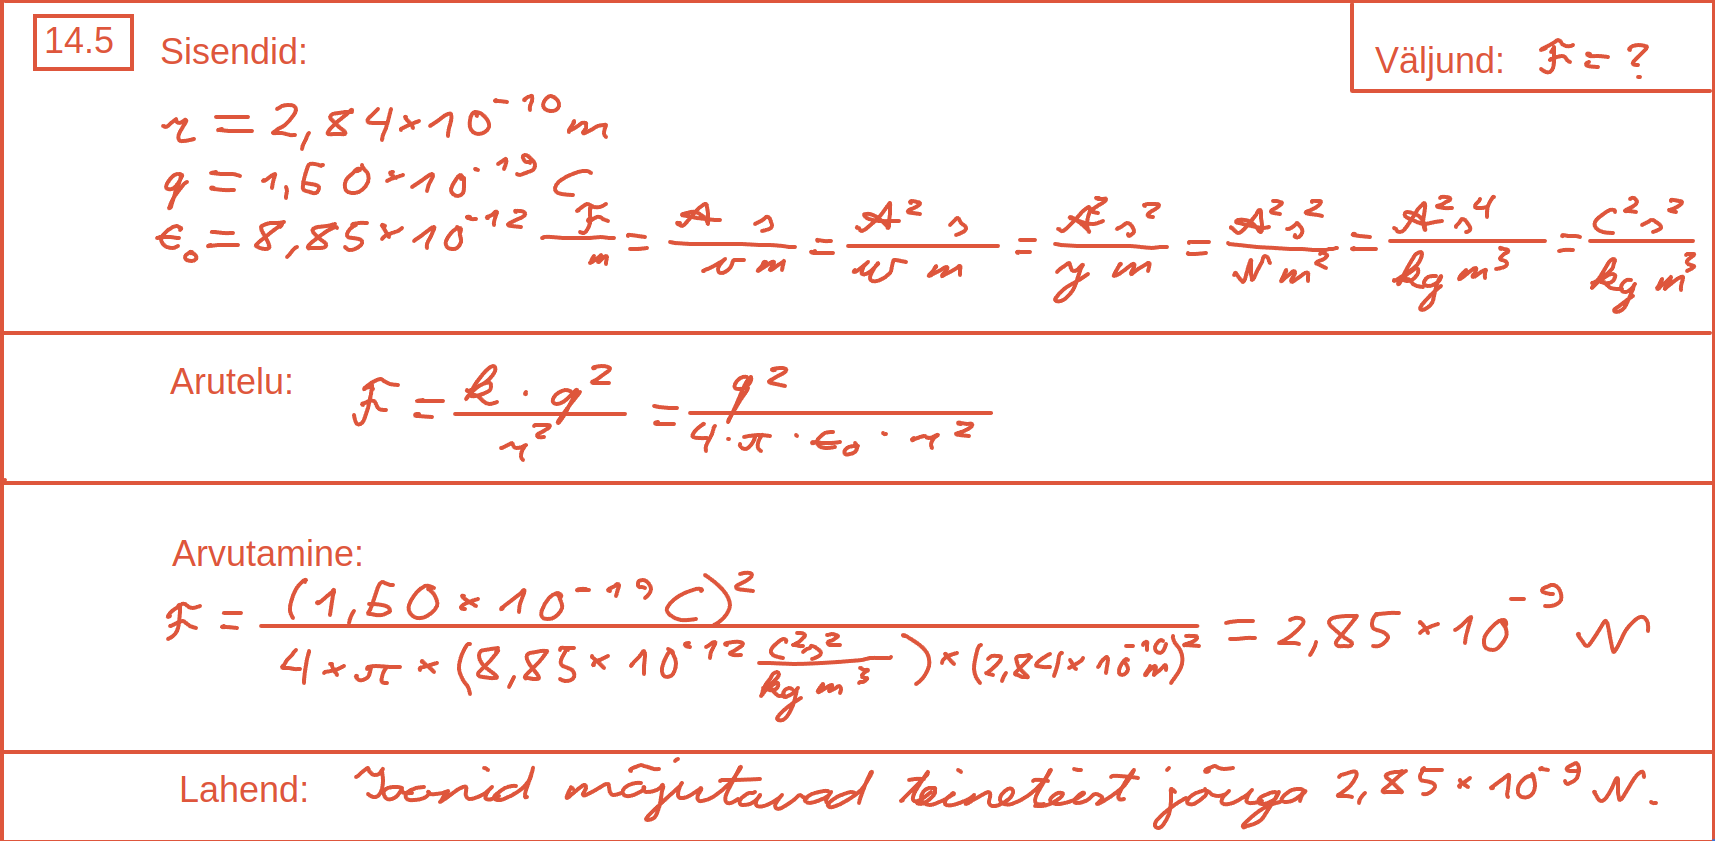 14.5 Sisendid: Väljund: F = ?
r = 2,84×10⁻¹⁰ m
q = 1,50×10⁻¹⁹ C
ε₀ = 8,85×10⁻¹² F/m = A s/(V m) = A² s/(W m) = A² s²/(J m) = A² s²/(N m²) = A² s⁴/(kg m³) = C² s²/(kg m³)
Arutelu: F = k · q²/r² = q²/(4 · π · ε₀ · r²)
Arvutamine:
F = (1,50×10⁻¹⁹ C)²/(4×π×(8,85×10⁻¹² C² s²/(kg m³))×(2,84×10⁻¹⁰ m)²) = 2,85×10⁻⁹ N
Lahend: Ioonid mõjutavad teineteist jõuga 2,85×10⁻⁹ N.